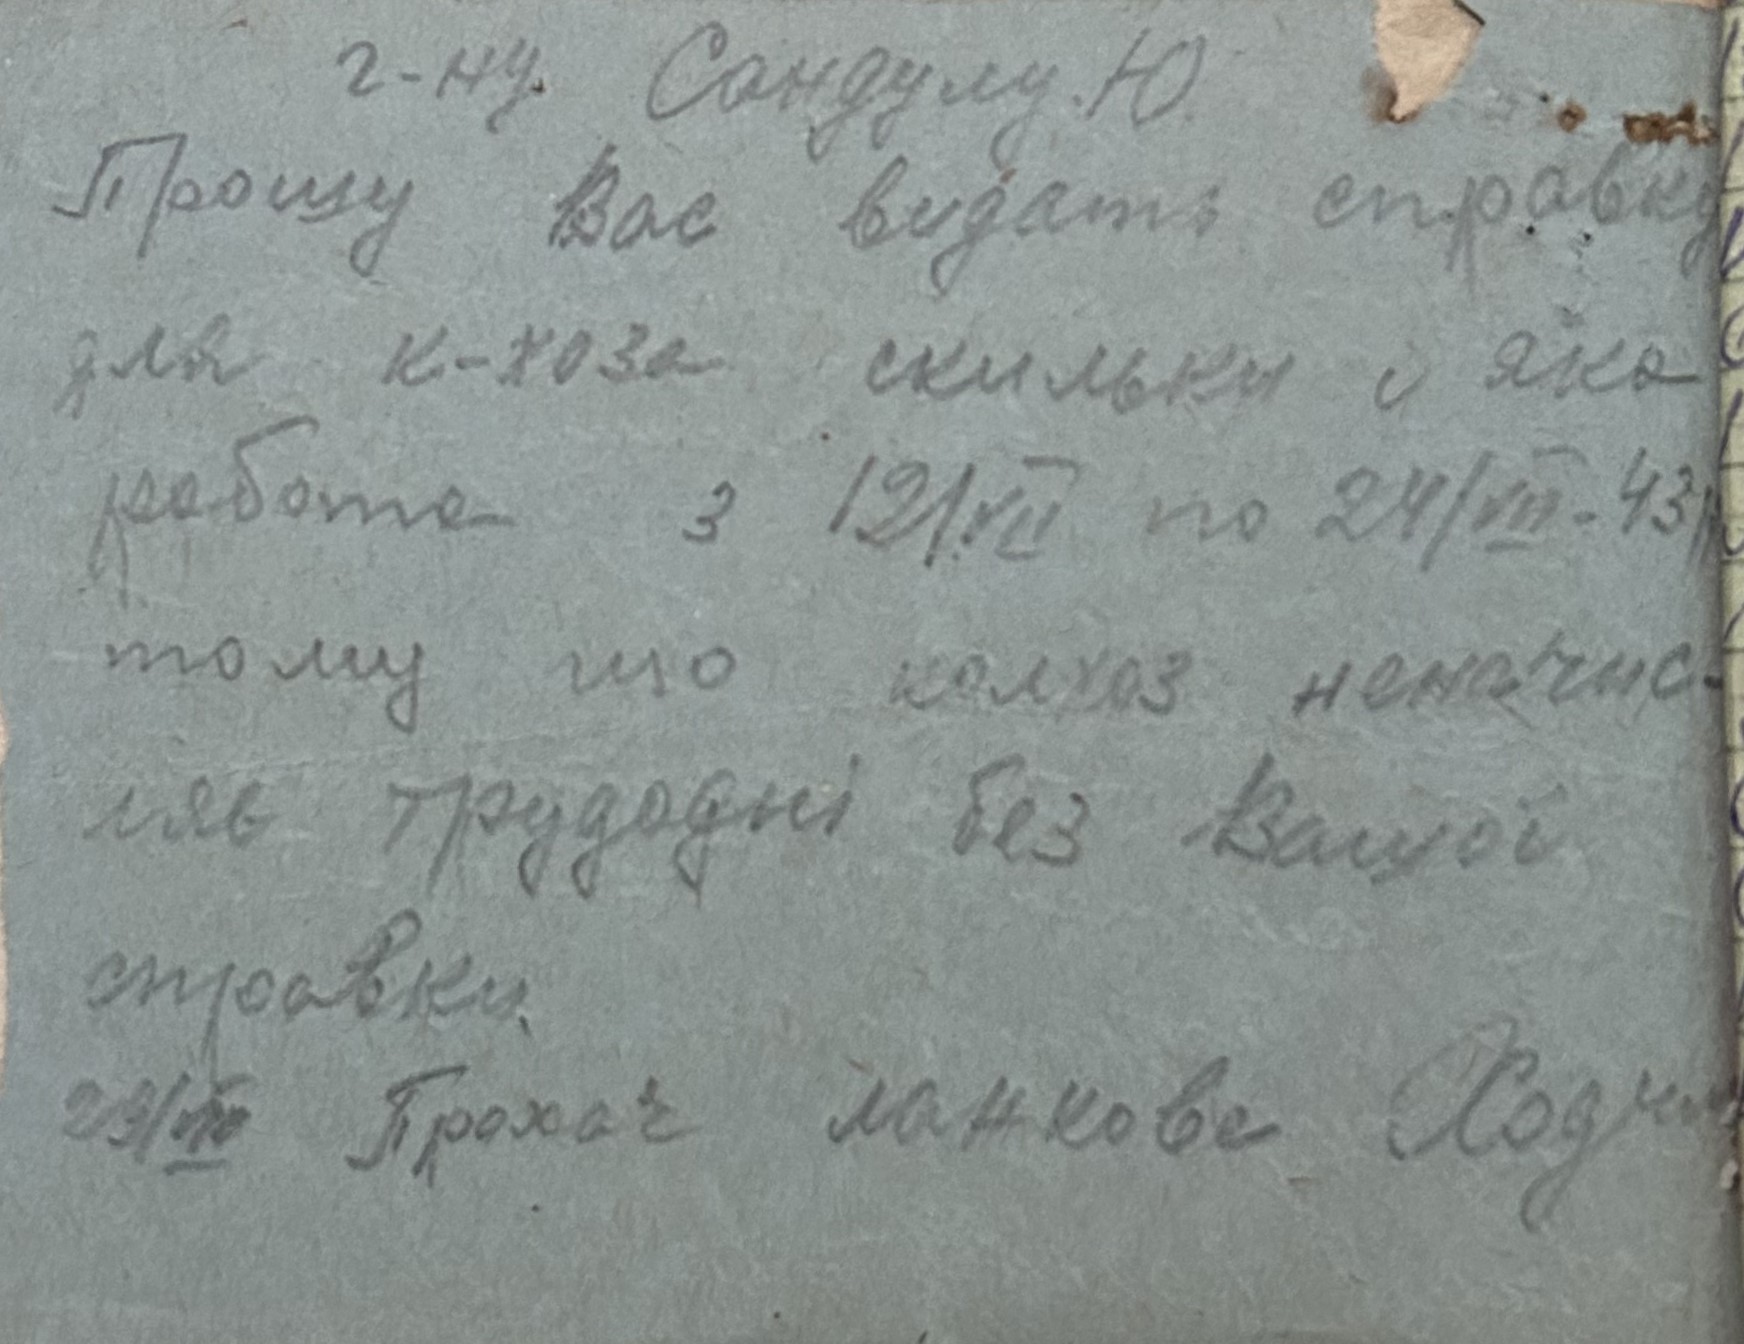 г-ну. Сандулу.Ю.
Прошу Вас видать справку
для к-хоза скильки и яка
работа з 12/VII по 24/VII-43р
тому що колхоз неначис-
ляв трудодні без Вашої
справки.
Прохач ланкова